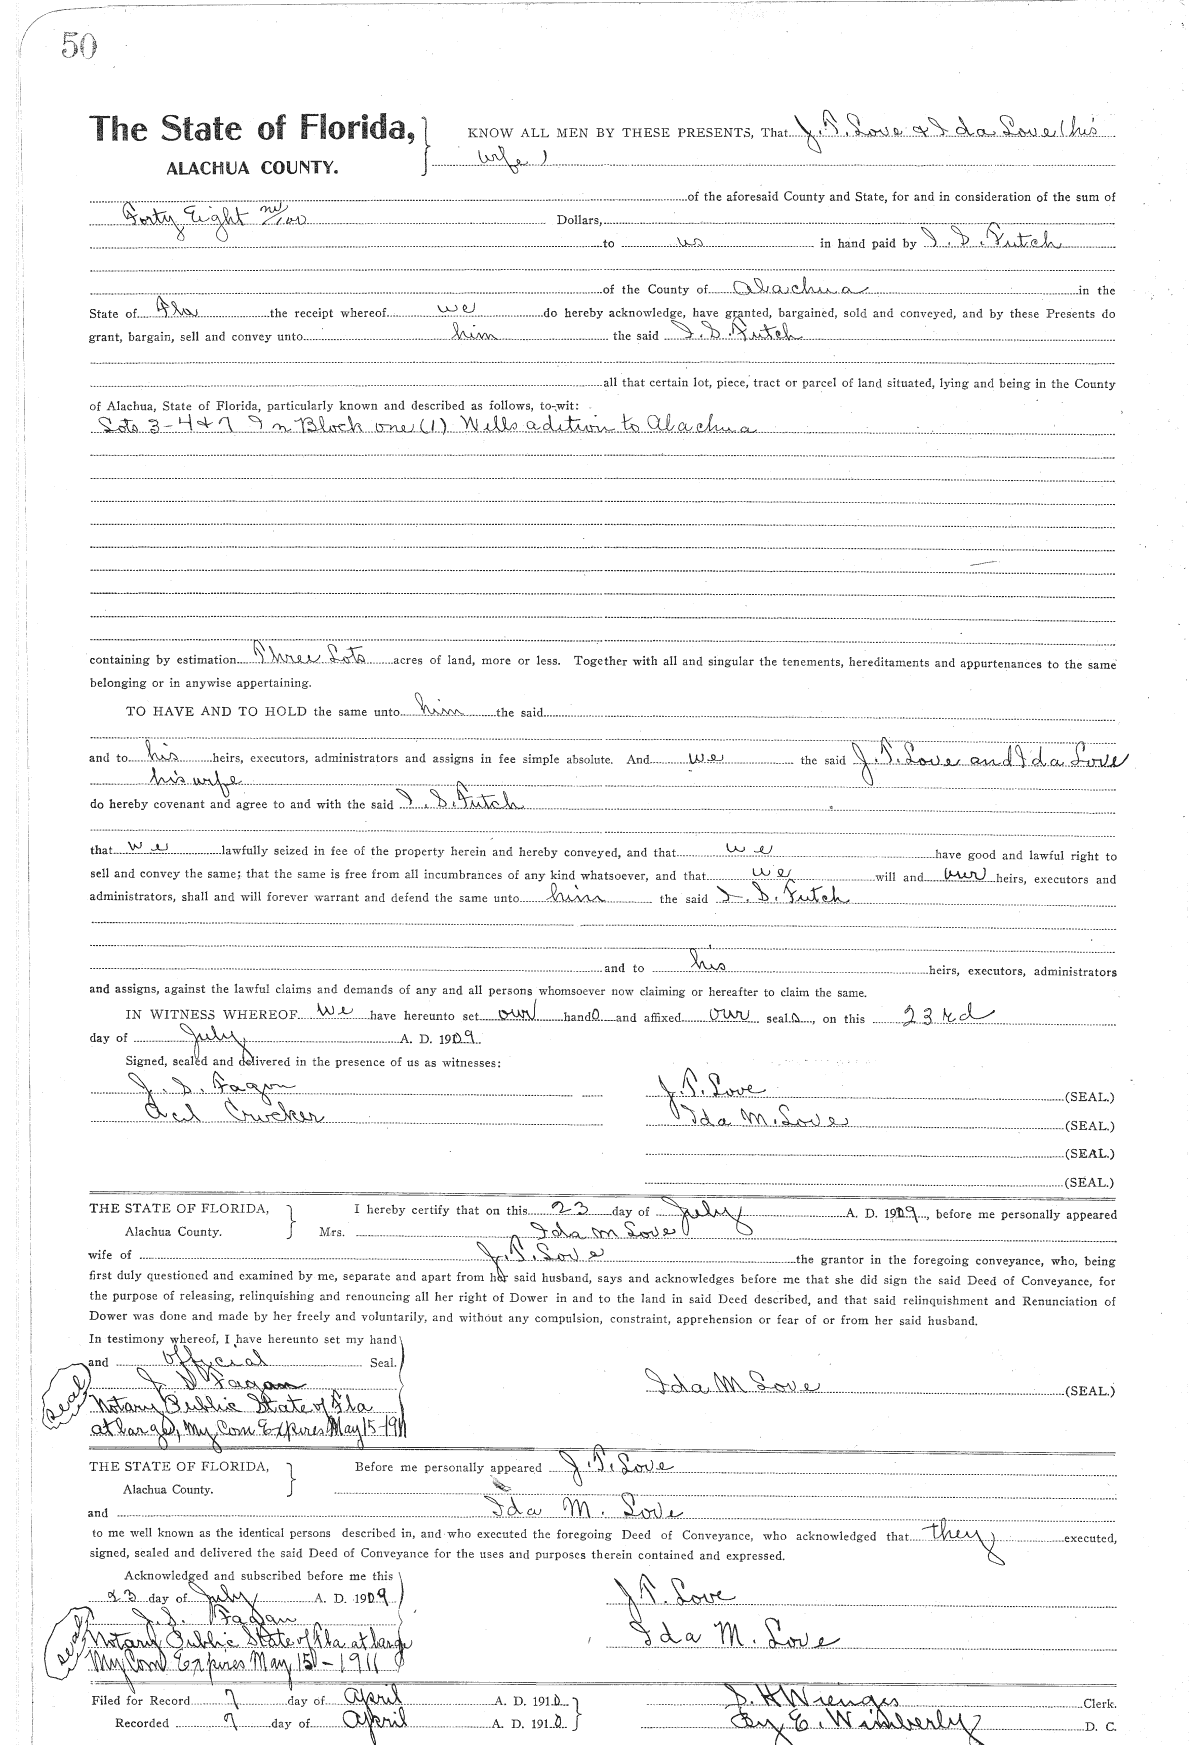 50
The State of Florida, KNOW ALL MEN BY THESE PRESENTS, That J. T. Love & Ida Love (his
ALACHUA COUNTY. wife)
of the aforesaid County and State, for and in consideration of the sum of
Forty Eight no/100 Dollars,
to us in hand paid by I. S. Futch
of the County of Alachua in the
State of Fla the receipt whereof we do hereby acknowledge, have granted, bargained, sold and conveyed, and by these Presents do
grant, bargain, sell and convey unto him the said I. S. Futch
all that certain lot, piece, tract or parcel of land situated, lying and being in the County
of Alachua, State of Florida, particularly known and described as follows, to-wit:
Lots 3-4 & 7 In Block one (1) Wells adition to Alachua
containing by estimation Three Lots acres of land, more or less. Together with all and singular the tenements, hereditaments and appurtenances to the same
belonging or in anywise appertaining.
TO HAVE AND TO HOLD the same unto him the said
and to his heirs, executors, administrators and assigns in fee simple absolute. And we the said J. T. Love and Ida Love
his wife
do hereby covenant and agree to and with the said I. S. Futch
that we lawfully seized in fee of the property herein and hereby conveyed, and that we have good and lawful right to
sell and convey the same; that the same is free from all incumbrances of any kind whatsoever, and that we will and our heirs, executors and
administrators, shall and will forever warrant and defend the same unto him the said I. S. Futch
and to his heirs, executors, administrators
and assigns, against the lawful claims and demands of any and all persons whomsoever now claiming or hereafter to claim the same.
IN WITNESS WHEREOF we have hereunto set our hands and affixed our seals, on this 23rd
day of July A. D. 1909.
Signed, sealed and delivered in the presence of us as witnesses:
J. S. Fagan J. T. Love (SEAL.)
Crocker Ida M. Love (SEAL.)
(SEAL.)
(SEAL.)
THE STATE OF FLORIDA, I hereby certify that on this 23 day of July A. D. 1909, before me personally appeared
Alachua County. Mrs. Ida M Love
wife of J. T. Love the grantor in the foregoing conveyance, who, being
first duly questioned and examined by me, separate and apart from her said husband, says and acknowledges before me that she did sign the said Deed of Conveyance, for
the purpose of releasing, relinquishing and renouncing all her right of Dower in and to the land in said Deed described, and that said relinquishment and Renunciation of
Dower was done and made by her freely and voluntarily, and without any compulsion, constraint, apprehension or fear of or from her said husband.
In testimony whereof, I have hereunto set my hand
and official Seal.
seal J. S. Fagan Ida M Love (SEAL.)
Notary Public State of Fla
at large, My Com Expires May 15-1911
THE STATE OF FLORIDA, Before me personally appeared J. T. Love
Alachua County.
and Ida M. Love
to me well known as the identical persons described in, and who executed the foregoing Deed of Conveyance, who acknowledged that they executed,
signed, sealed and delivered the said Deed of Conveyance for the uses and purposes therein contained and expressed.
Acknowledged and subscribed before me this
23 day of July A. D. 1909 J T. Love
J. S. Fagan
seal Notary Public State of Fla at large Ida M. Love
My Com Expires May 15-1911
Filed for Record 7 day of April A. D. 1910 S. H Wienges Clerk.
Recorded 7 day of April A. D. 1910 By E. Wimberly D. C.